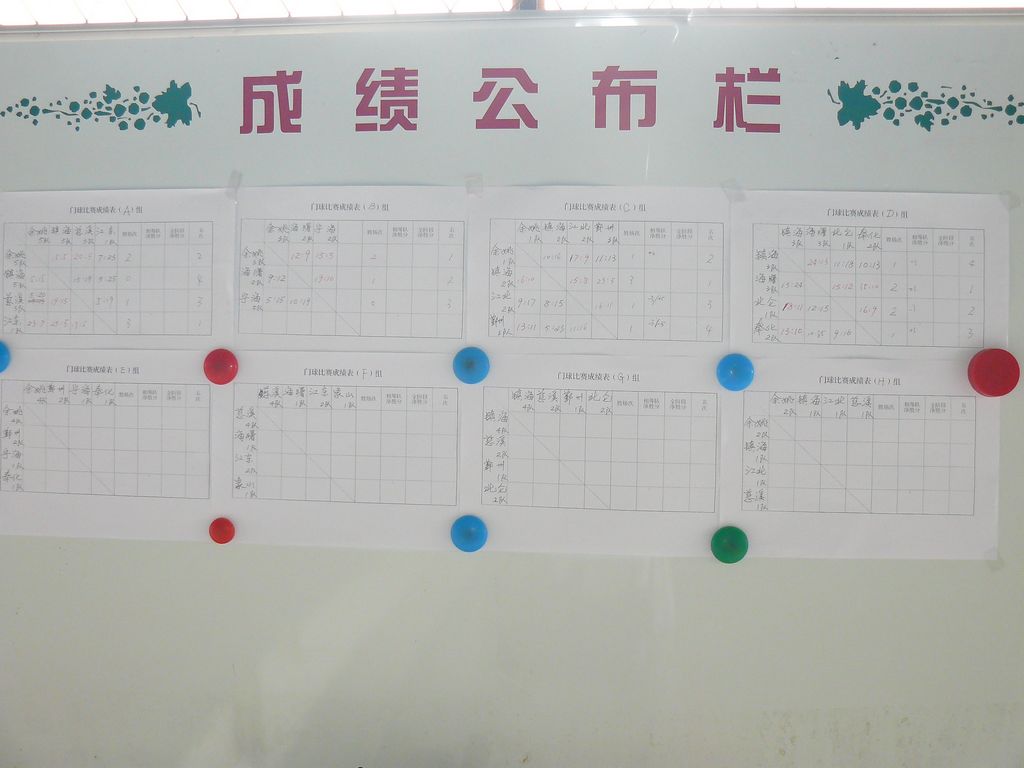 成绩公布栏
门球比赛成绩表（A）组
余姚 镇海 慈溪 江东 胜场次 相等队净胜分 全阶段净胜分 名次
5队 5队 3队 1队
余姚 7:23 2 2
5队
镇海 5:15 9:25 0 4
5队
慈溪 1 3
3队
江东 3 1
1队
门球比赛成绩表（B）组
余姚 海曙 宁海 胜场次 相等队净胜分 全阶段净胜分 名次
3队 2队 2队
余姚 12:9 15:5 2 1
3队
海曙 9:12 19:10 1 2
2队
宁海 5:15 10:19 0 3
2队
门球比赛成绩表（C）组
余姚 镇海 江北 鄞州 胜场次 相等队净胜分 全阶段净胜分 名次
1队 2队 2队 3队
余姚 10:16 17:9 11:13 1 2
1队
镇海 16:10 15:8 23:5 3 1
2队
江北 9:17 8:15 16:11 1 3
2队
鄞州 13:11 5:23 11:16 1 4
3队
门球比赛成绩表（D）组
镇海 海曙 北仑 奉化 胜场次 相等队净胜分 全阶段净胜分 名次
3队 3队 1队 2队
镇海 11:18 10:13 1 4
3队
海曙 15:24 15:12 15:10 2 1
3队
北仑 18:11 12:15 16:9 2 2
1队
奉化 13:10 10:15 9:16 1 3
2队
门球比赛成绩表（E）组
余姚 鄞州 宁海 奉化 胜场次 相等队净胜分 全阶段净胜分 名次
4队 2队 1队 1队
余姚
4队
鄞州
2队
宁海
1队
奉化
1队
门球比赛成绩表（F）组
慈溪 海曙 江东 象山 胜场次 相等队净胜分 全阶段净胜分 名次
4队 1队 2队 1队
慈溪
4队
海曙
1队
江东
2队
象山
1队
门球比赛成绩表（G）组
镇海 慈溪 鄞州 北仑 胜场次 相等队净胜分 全阶段净胜分 名次
4队 2队 1队 2队
镇海
4队
慈溪
2队
鄞州
1队
北仑
2队
门球比赛成绩表（H）组
余姚 镇海 江北 慈溪 胜场次 相等队净胜分 全阶段净胜分 名次
2队 1队 1队 1队
余姚
2队
镇海
1队
江北
1队
慈溪
1队